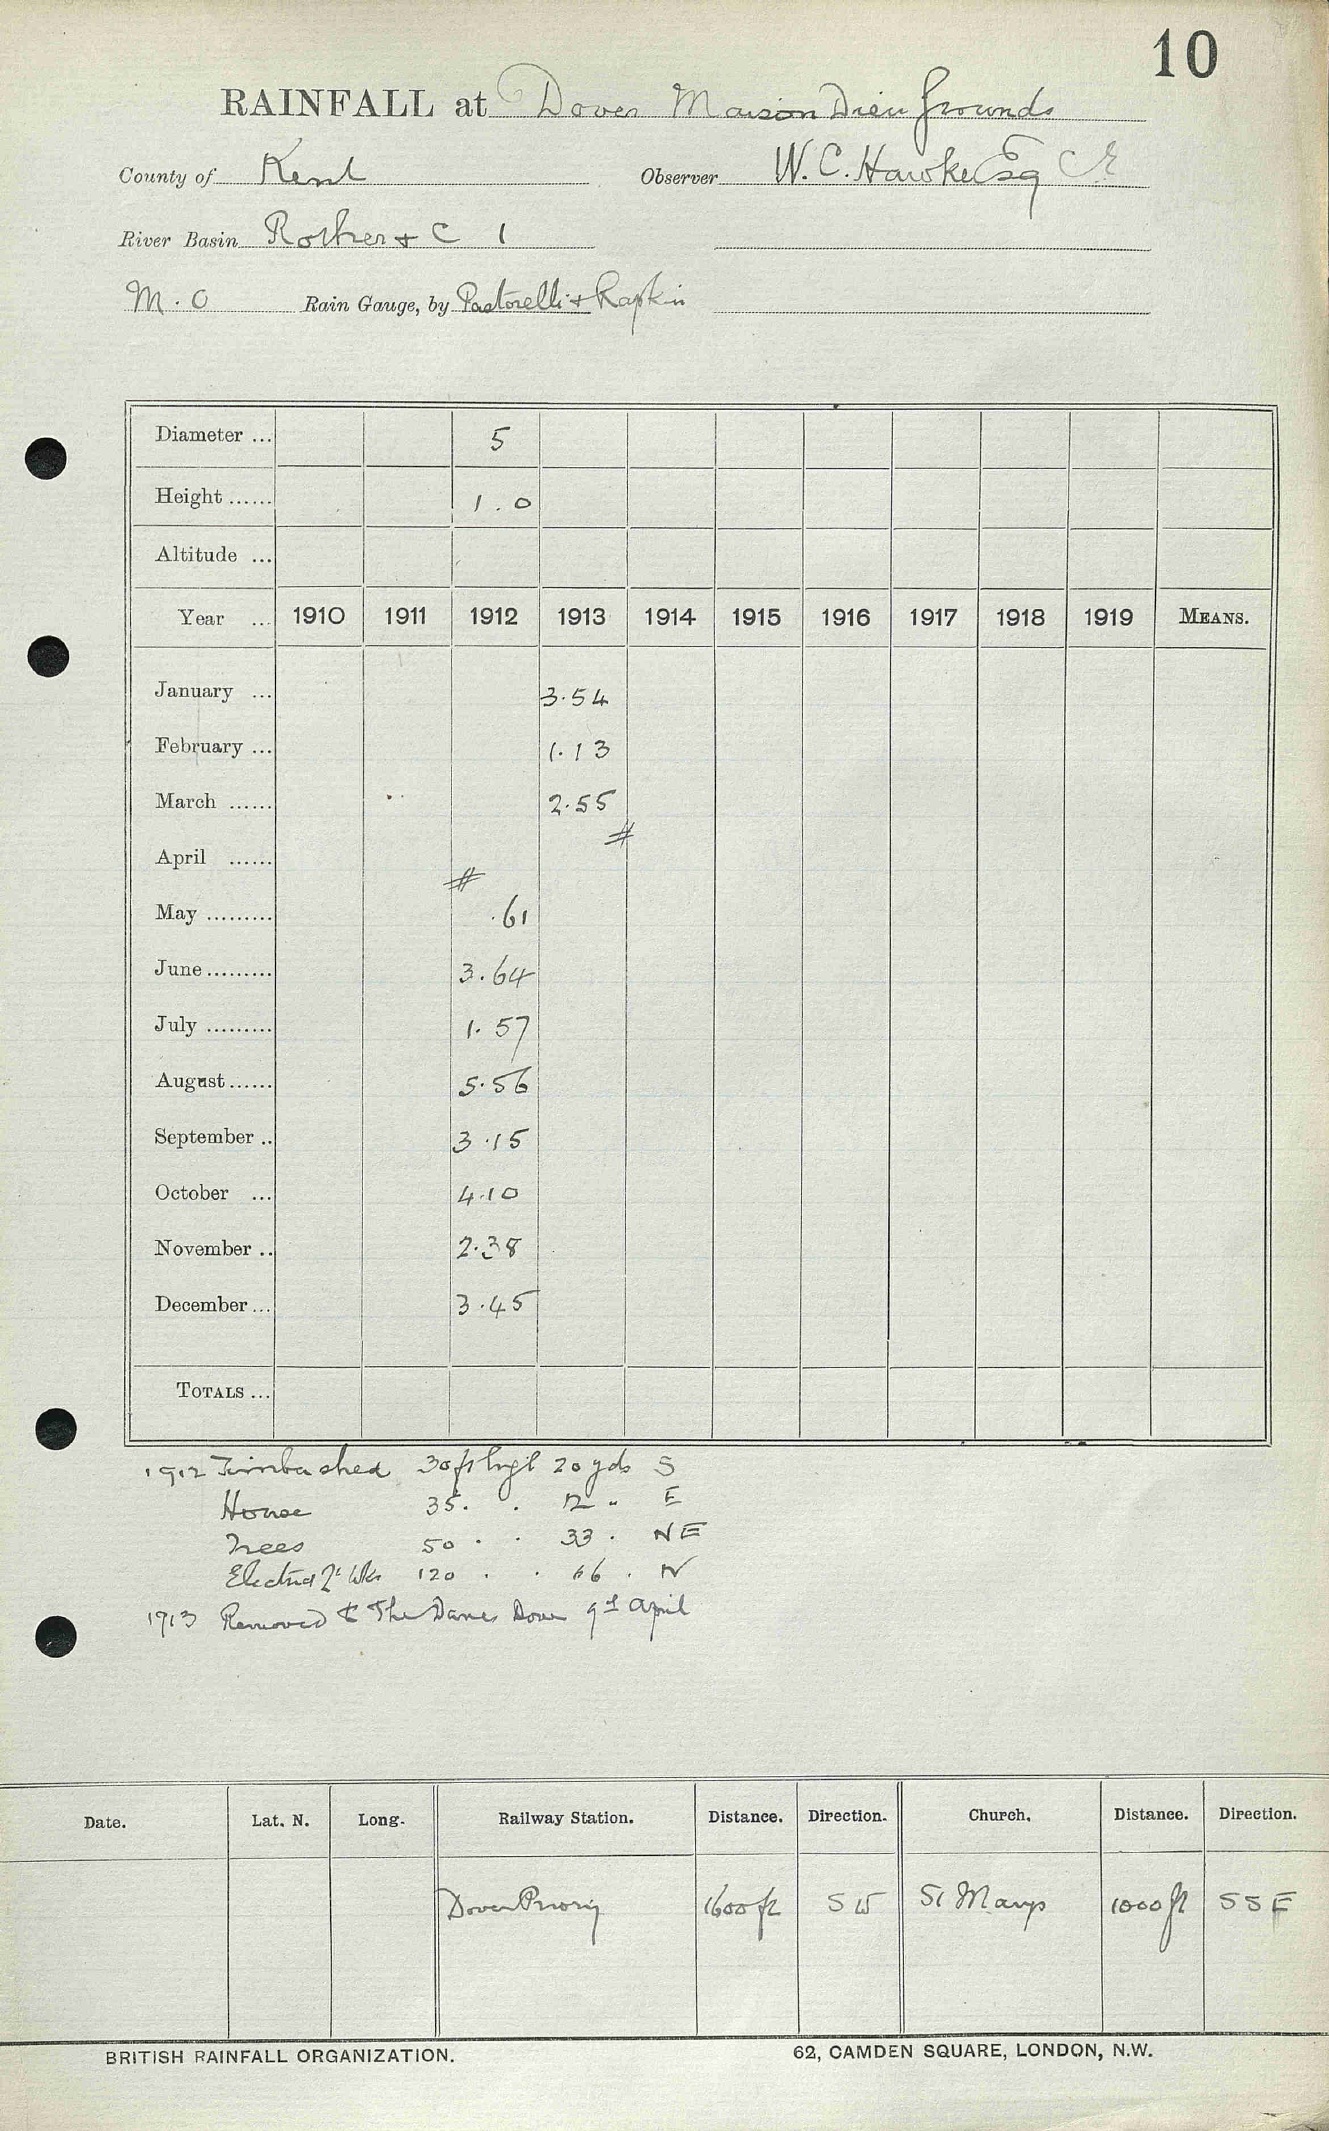 10
RAINFALL at Dover Maison Dieu Grounds
County of Kent Observer W. C. Hawke Esq CE
River Basin Rother + C 1
M.O Rain Gauge, by Pastorelli + Rapkin
Diameter ... 5
Height ...... 1.0
Altitude ...
Year ... 1910 1911 1912 1913 1914 1915 1916 1917 1918 1919 MEANS.
January ... 3.54
February ... 1.13
March ...... 2.55
#
April ......
#
May ......... .61
June ......... 3.64
July ......... 1.57
August ...... 5.56
September .. 3.15
October ... 4.10
November .. 2.38
December ... 3.45
TOTALS ...
1912 Timber shed 30 ft high 20 yds S
House 35 . . 12 " E
Trees 50 . . 33 . NE
Electric Wks 120 . . 66 . N
1913 Removed to The Danes Dover 9th April
Date. Lat. N. Long. Railway Station. Distance. Direction. Church. Distance. Direction.
Dover Priory 1600 ft SW St Marys 1000 ft SSE
BRITISH RAINFALL ORGANIZATION. 62, CAMDEN SQUARE, LONDON, N.W.